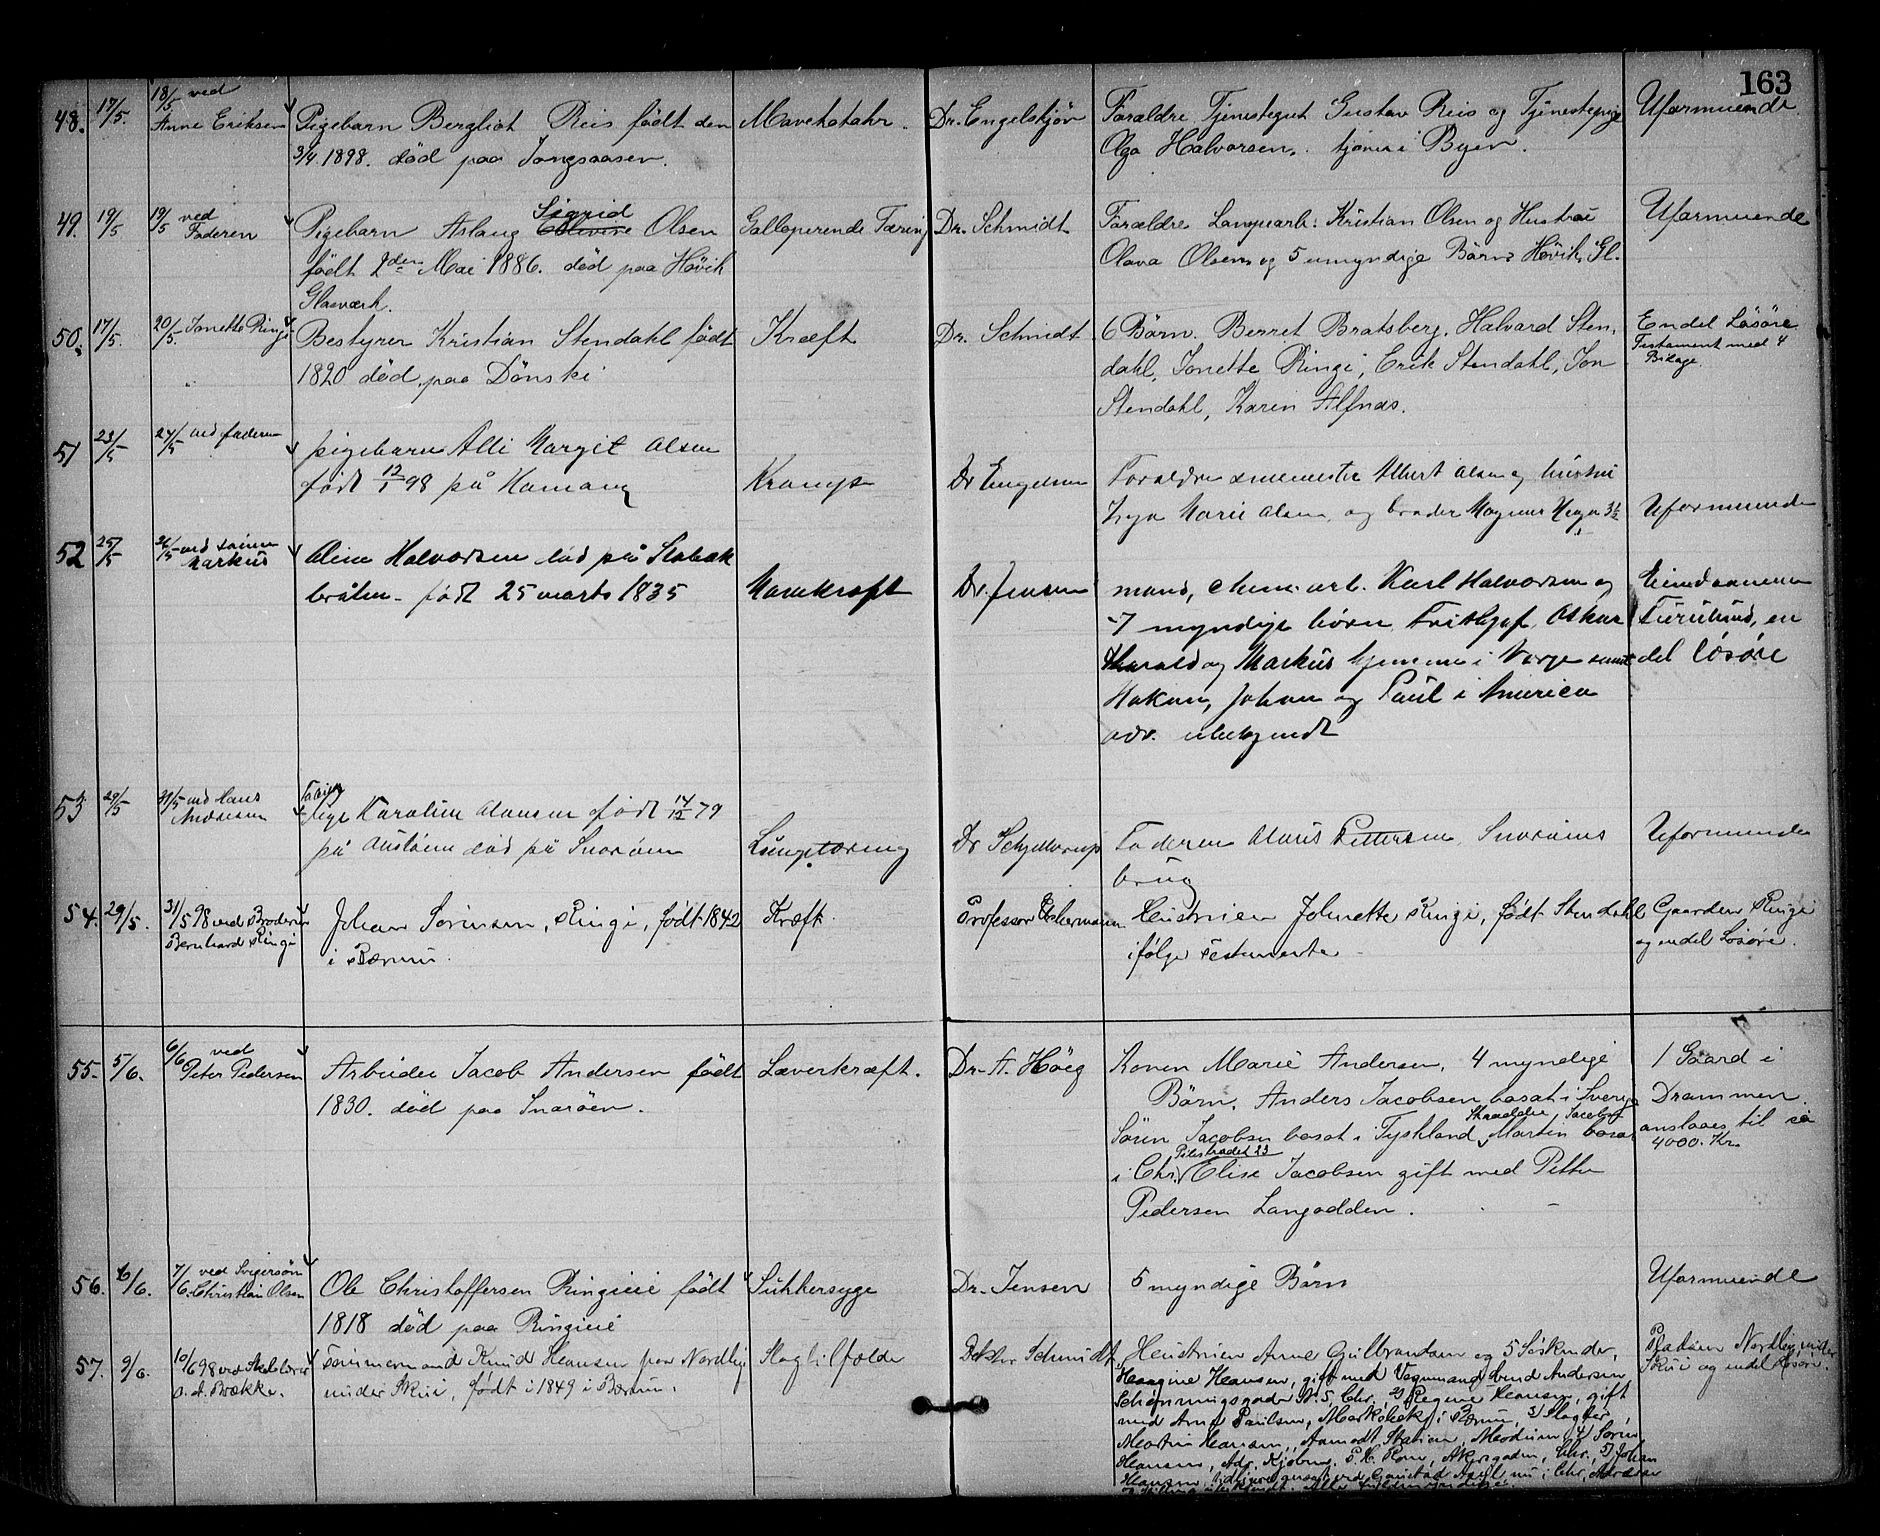 163
48. 17/5. 18/5 ved Anne Eriksen
Pigebarn Bergliot Reis født den
3/4 1898. død paa Jongsaasen.
Mavekatahr.
Dr. Engelskjøn
Forældre Tjenestegut Gustav Reis og Tjenestepige
Olga Halvorsen, tjener i Byen.
Uformuende
49. 19/5 19/5 ved Faderen
Pigebarn Aslaug Sigrid Olsen
født 2den Mai 1886. død paa Høvik
Glasværk.
Galloperende Tæring
Dr. Schmidt
Forældre Lampearb. Kristian Olsen og Hustru
Olava Olsen og 5 umyndige Børn Høvik Gl.
Uformuende
50. 17/5. 20/5. Jonette Ringi
Bestyrer Kristian Stendahl født
1820 død paa Dønski
Kræft
Dr. Schmidt
6 Børn. Berret Bratsberg, Halvard Sten,
dahl, Jonette Ringi, Erik Stendahl, Jon
Stendahl, Karen Alfnas.
Endel Løsøre
Testament med 4
Bilage
51 23/5 24/5 ved faderen
pigebarn Alli Margit Olsen
født 12/1 98 på Hamang
Krampe
Dr Engelsen
Forældre smemester Albert Olsen og hustru
Marie Olsen og broder Magnus 3½
Uformuende
52 25/5 26/5 ved sønnen Markus
Oline Halvorsen død på Stabæk
bråten - født 25 marts 1835
Mavekræft
Dr. Jensen
mand, chem. arb. Karl Halvorsen og
7 myndige børn Frithjof, Oskar
Harald og Markus hjemme i Norge samt
Hakon, Johan og Paul i America
adr. ubekjendt
Eiendommen
Furulund, en
del løsøre
53 29/5 31/5 ved Hans Andersen
Pige Karoline Olausen født 14/12 79
på Ousløen død på Snarøen
Lungetæring
Dr Schjelderup
Faderen Olaus Pettersen, Snarøens
brug
Uformuende
54. 29/5. 31/5 98 ved Broderen
Bernhard Ringi
Johan Sørensen, Ringi, født 1842
i Bærum.
Kræft.
Professor
Hustruen Johnette Ringi, født Stendahl
ifølge Testamente -
Gaarden Ringi
og endel Løsøre.
55. 5/6. 6/6 ved
Peter Pedersen
Arbeider Jacob Andersen født
1830. død paa Snarøen.
Leverkræft.
Dr. A. Høeg
Konen Marie Andersen, 4 myndige
Børn. Anders Jacobsen bosat i Sverige
Skrædder, Jacobsen
Søren Jacobsen bosat i Tyskland, Martin bosat
Pilestrædet 23
i Chr. Elise Jacobsen gift med Petter
Pedersen Langodden.
1 Gaard i
Drammen
anslaaes til ca
4000. Kr.
56. 6/6. 7/6. ved Svigersøn
Christian Olsen
Ole Christoffersen Ringieie født
1818 død paa Ringieie
Sukkersyge
Dr. Jensen
5 myndige Børn
Uformuende
57. 9/6. 10/6 98 ved Skolelærer
O. A. Brække.
Tømmermand Knud Hansen paa Nordby
under Skui, født i 1849 i Bærum.
Slagtilfælde
Doktor Schmidt,
Hustruen Anne Gulbrandsen og 5 Søskende,
Haagine Hansen, gift med Vognmand Svend Andersen
Schønningsgade No. 5, Chr., 2) Regine Hansen, gift
med Arne Paulsen, i Bærum, 3) Slagter
Martin Hansen, Aamodt Station, Modum, 4) Søren
Hansen, Adr. Kjøbm. P. K. Akersgaden, Chr., 5) Johan
Hansen tidligere ved Gaustad Asyl nu i Chr., Adresse
Pladsen Nordby under
Skui og endel Løsøre.